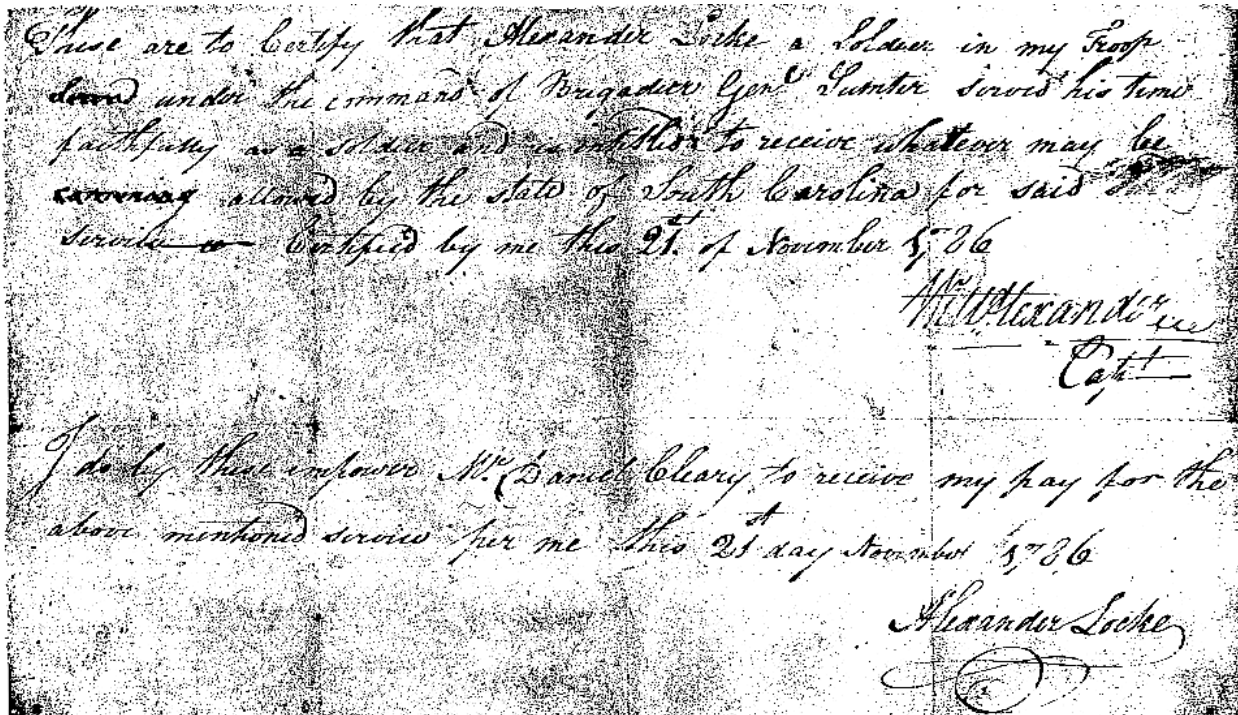 These are to Certify that Alexander Locke a Soldier in my Troop
under the command of Brigadier Genl Sumter served his time
faithfully as a soldier and is intitled to receive whatever may be
allowed by the state of South Carolina for said
service Certified by me this 21st of November 1786
Wm Alexander
Capt
I do by these impower Mr. Daniel Cleary to receive my pay for the
above mentioned service per me this 21st day November 1786
Alexander Locke